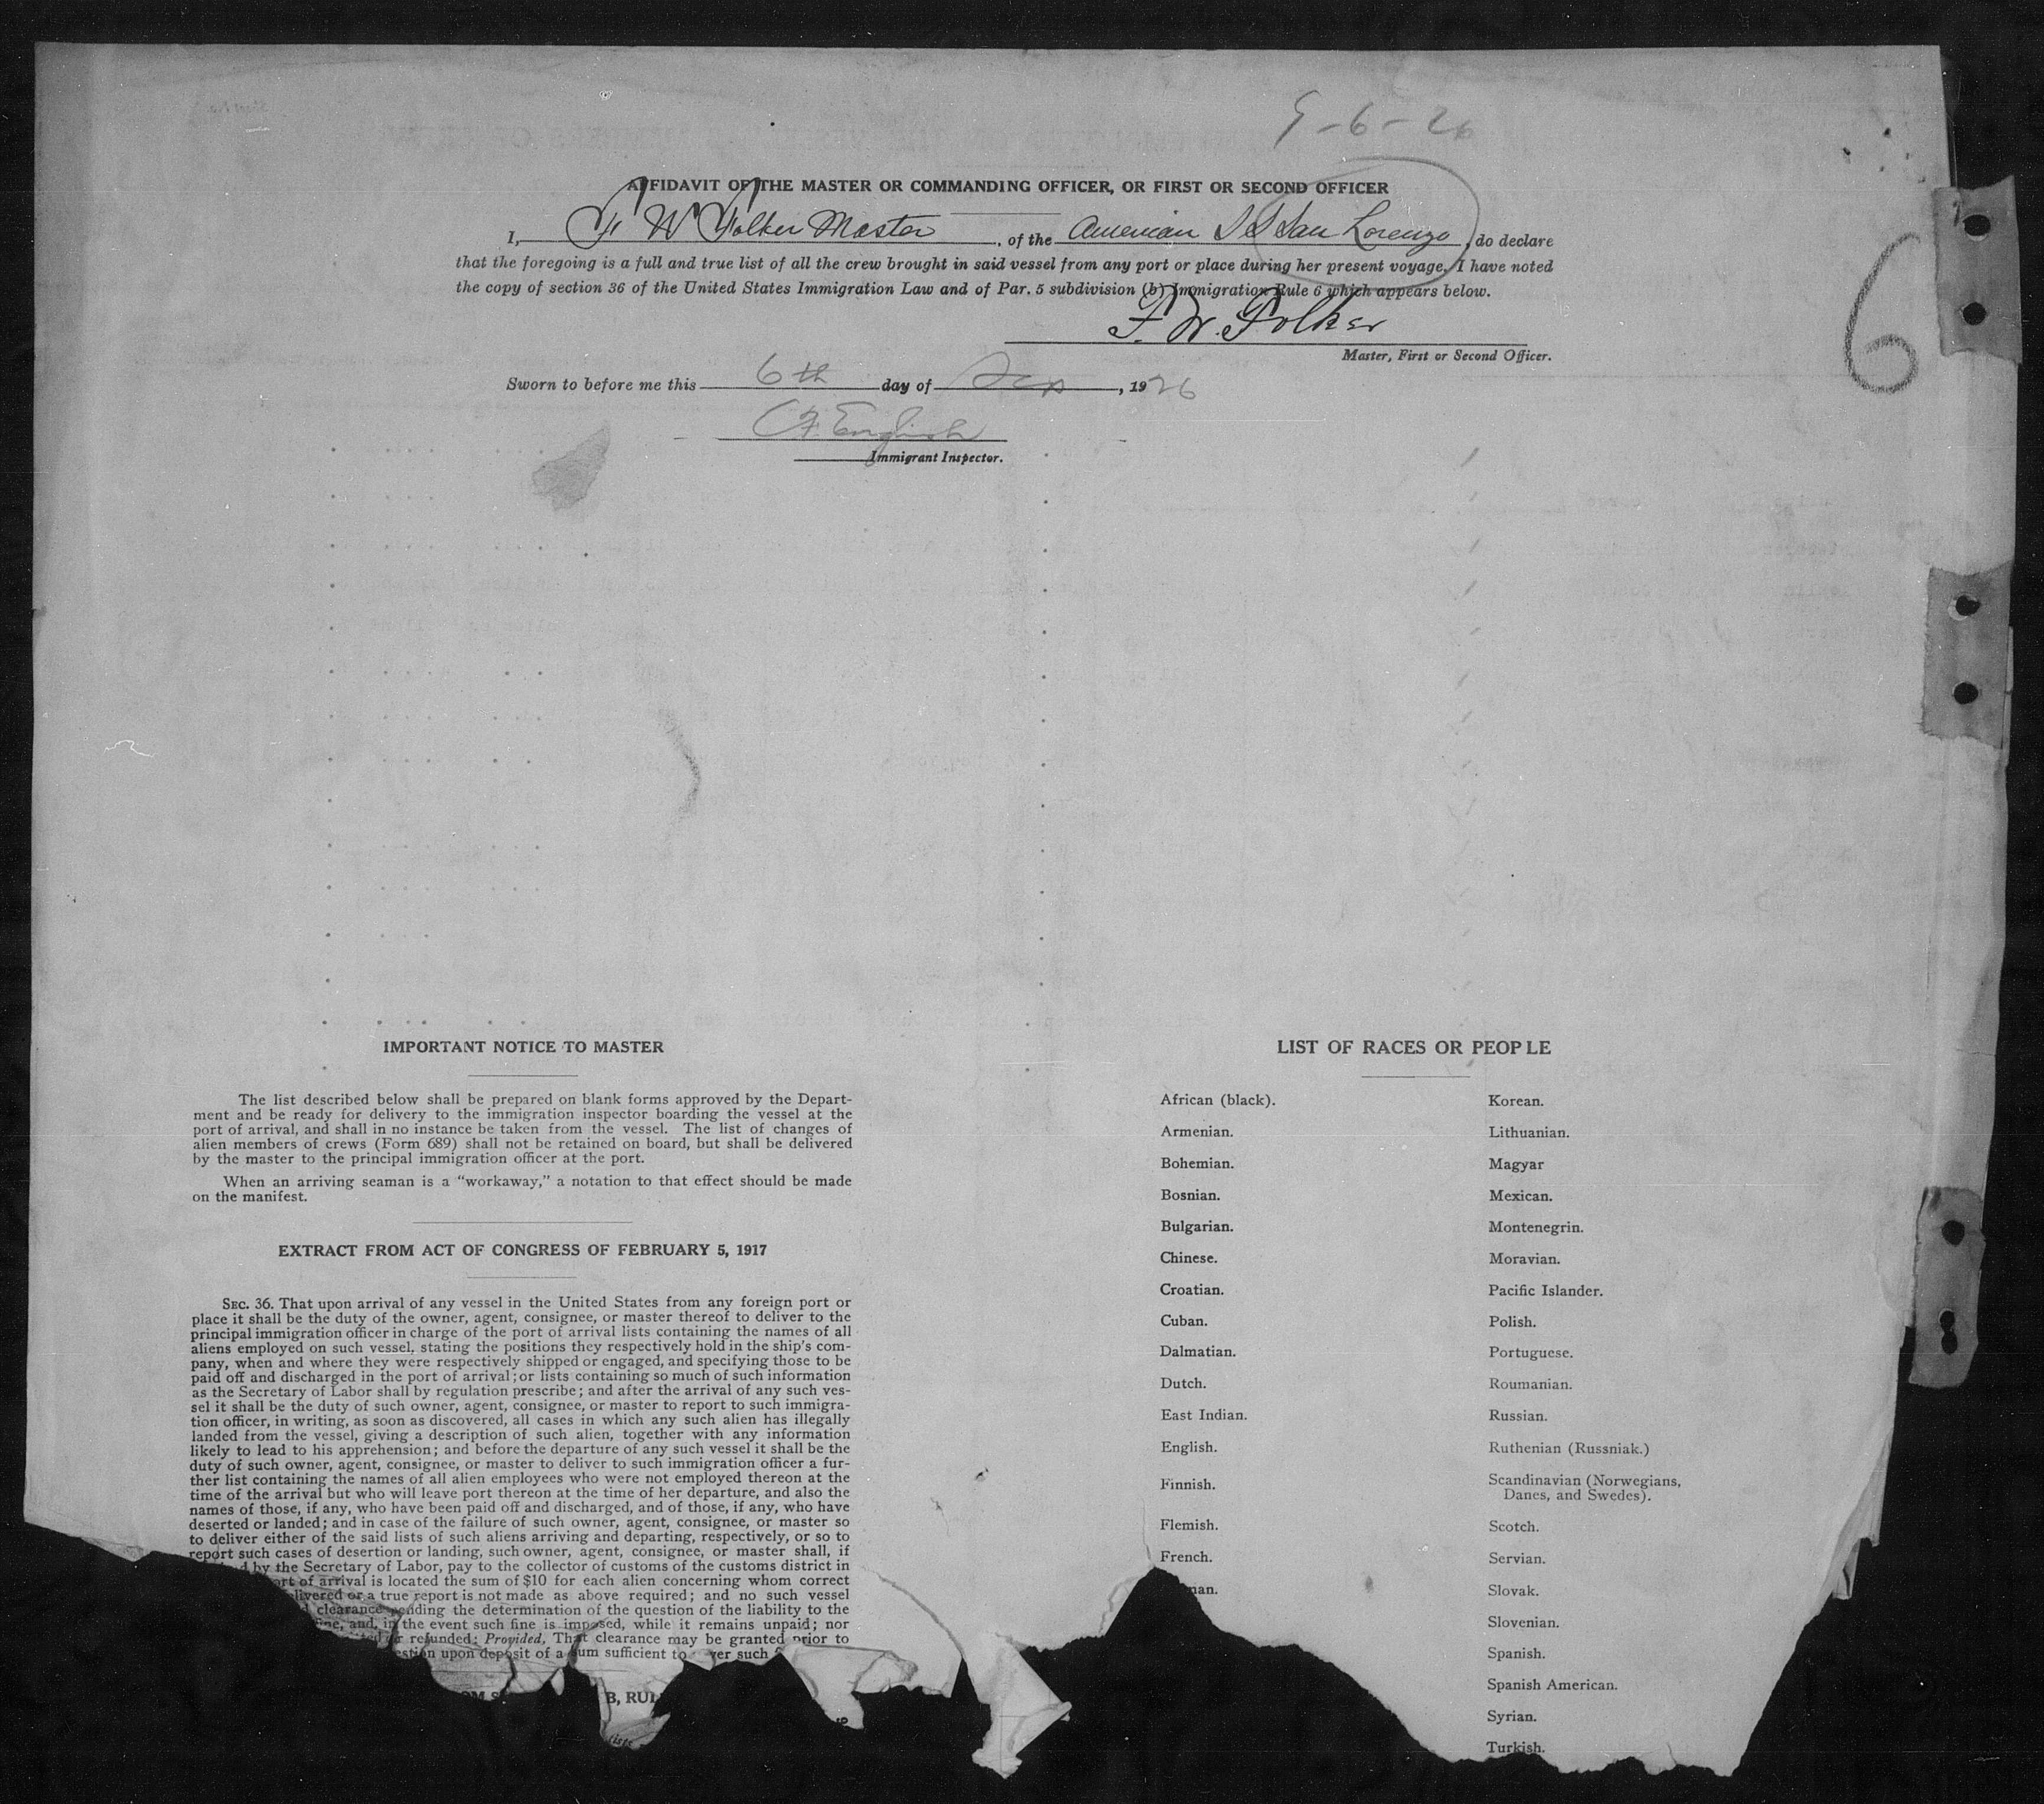 9-6-26
AFFIDAVIT OF THE MASTER OR COMMANDING OFFICER, OR FIRST OR SECOND OFFICER
I, F W Folker Master, of the American SS San Lorenzo, do declare
that the foregoing is a full and true list of all the crew brought in said vessel from any port or place during her present voyage. I have noted
the copy of section 36 of the United States Immigration Law and of Par. 5 subdivision (b) Immigration Rule 6 which appears below.
6
F. W. Folker
Master, First or Second Officer.
Sworn to before me this 6th day of Sep, 1926
English
Immigrant Inspector.
IMPORTANT NOTICE TO MASTER
The list described below shall be prepared on blank forms approved by the Depart-
ment and be ready for delivery to the immigration inspector boarding the vessel at the
port of arrival, and shall in no instance be taken from the vessel. The list of changes of
alien members of crews (Form 689) shall not be retained on board, but shall be delivered
by the master to the principal immigration officer at the port.
When an arriving seaman is a "workaway," a notation to that effect should be made
on the manifest.
EXTRACT FROM ACT OF CONGRESS OF FEBRUARY 5, 1917
SEC. 36. That upon arrival of any vessel in the United States from any foreign port or
place it shall be the duty of the owner, agent, consignee, or master thereof to deliver to the
principal immigration officer in charge of the port of arrival lists containing the names of all
aliens employed on such vessel, stating the positions they respectively hold in the ship's com-
pany, when and where they were respectively shipped or engaged, and specifying those to be
paid off and discharged in the port of arrival; or lists containing so much of such information
as the Secretary of Labor shall by regulation prescribe; and after the arrival of any such ves-
sel it shall be the duty of such owner, agent, consignee, or master to report to such immigra-
tion officer, in writing, as soon as discovered, all cases in which any such alien has illegally
landed from the vessel, giving a description of such alien, together with any information
likely to lead to his apprehension; and before the departure of any such vessel it shall be the
duty of such owner, agent, consignee, or master to deliver to such immigration officer a fur-
ther list containing the names of all alien employees who were not employed thereon at the
time of the arrival but who will leave port thereon at the time of her departure, and also the
names of those, if any, who have been paid off and discharged, and of those, if any, who have
deserted or landed; and in case of the failure of such owner, agent, consignee, or master so
to deliver either of the said lists of such aliens arriving and departing, respectively, or so to
report such cases of desertion or landing, such owner, agent, consignee, or master shall, if
by the Secretary of Labor, pay to the collector of customs of the customs district in
of arrival is located the sum of $10 for each alien concerning whom correct
or a true report is not made as above required; and no such vessel
clearance pending the determination of the question of the liability to the
and, in the event such fine is imposed, while it remains unpaid; nor
refunded: Provided, That clearance may be granted prior to
upon deposit of a sum sufficient to such
B, RUL
LIST OF RACES OR PEOPLE
African (black).
Armenian.
Bohemian.
Bosnian.
Bulgarian.
Chinese.
Croatian.
Cuban.
Dalmatian.
Dutch.
East Indian.
English.
Finnish.
Flemish.
French.
Korean.
Lithuanian.
Magyar
Mexican.
Montenegrin.
Moravian.
Pacific Islander.
Polish.
Portuguese.
Roumanian.
Russian.
Ruthenian (Russniak.)
Scandinavian (Norwegians,
Danes, and Swedes).
Scotch.
Servian.
Slovak.
Slovenian.
Spanish.
Spanish American.
Syrian.
Turkish.